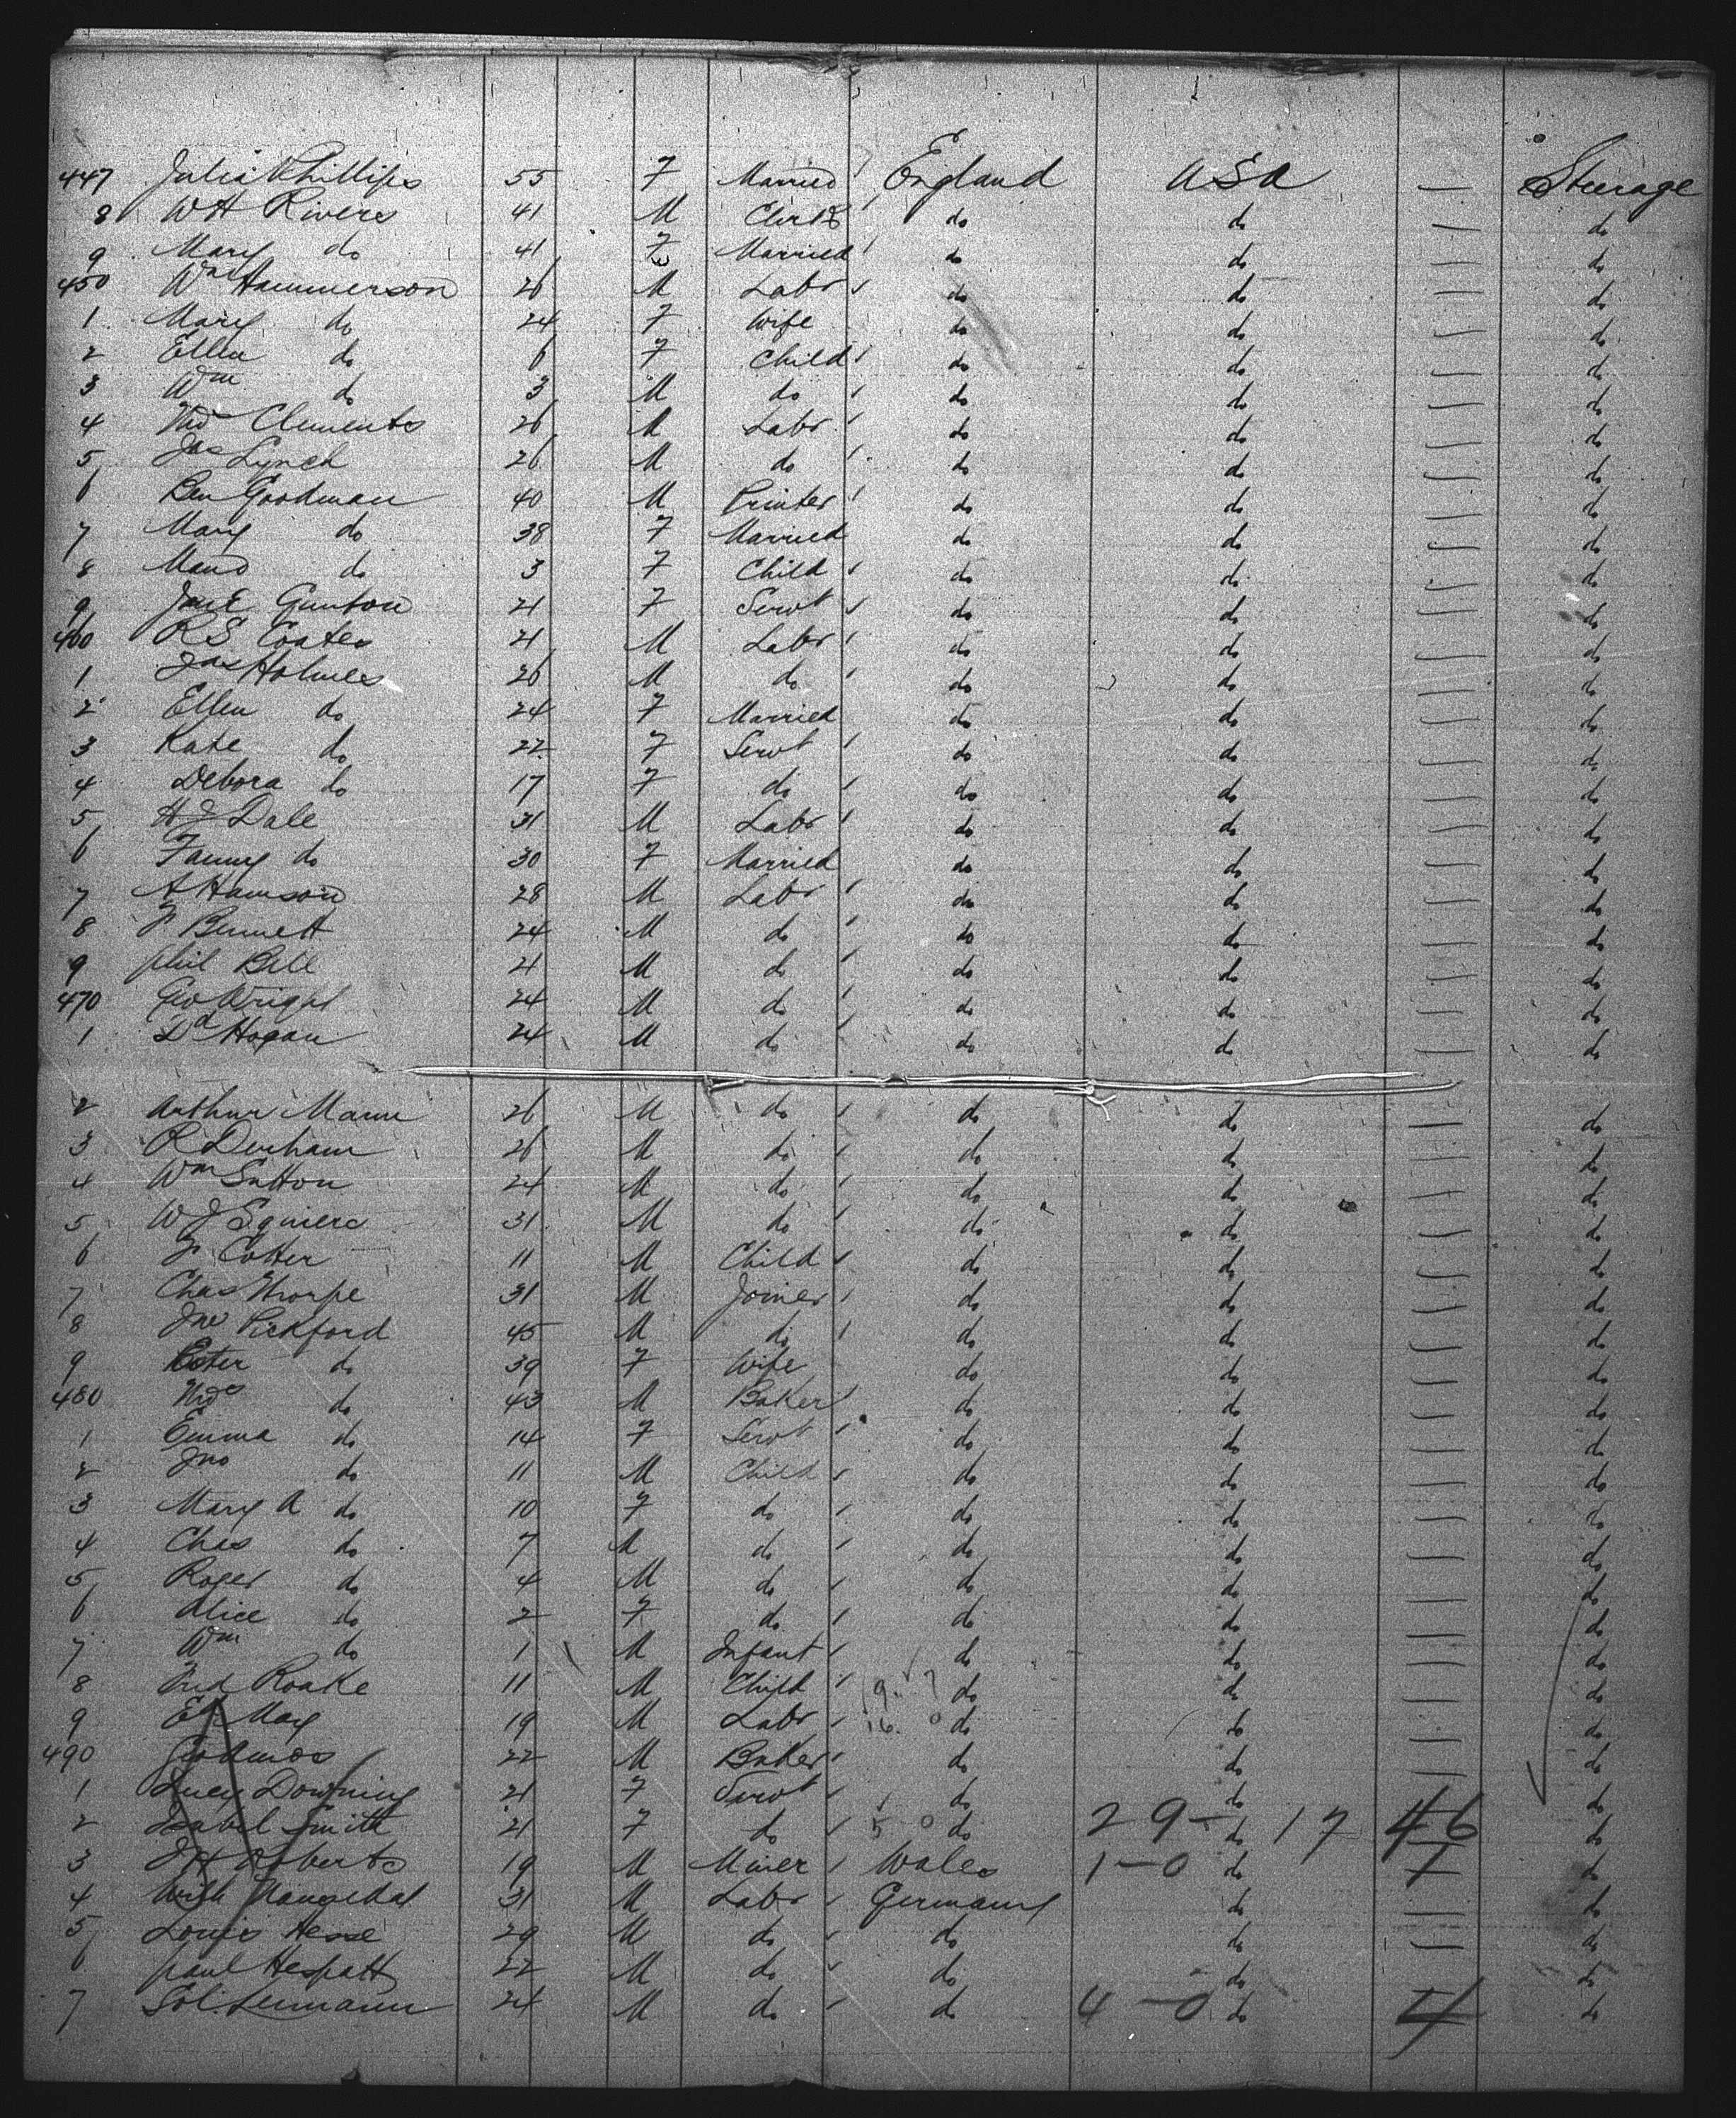 447 Julia Phillips 55 F Married England USA — Steerage
8 W H Rivers 41 M Clerk do do — do
9 Mary do 41 F Married do do — do
450 Wm Hammerson 26 M Labr do do — do
1 Mary do 24 F Wife do do — do
2 Ellen do 6 F Child do do — do
3 Wm do 3 M do do do — do
4 Clements 26 M Labr do do — do
5 Jas Lynch 26 M do do do — do
6 Ben Goodman 40 M Printer do do — do
7 Mary do 38 F Married do do — do
8 Maud do 3 F Child do do — do
9 Gunton 21 F Servt do do — do
460 R S Coates 21 M Labr do do — do
1 Jas Holmes 26 M do do do — do
2 Ellen do 24 F Married do do — do
3 Kate do 22 F Servt do do — do
4 Debora do 17 F do do do — do
5 H J Dale 31 M Labr do do — do
6 Fanny do 30 F Married do do — do
7 A Hamson 28 M Labr do do — do
8 Bennett 24 M do do do — do
9 Phil Bell 21 M do do do — do
470 Geo Wright 24 M do do do — do
1 Dd Hogan 24 M do do do — do
2 Arthur Mann 26 M do do do — do
3 R Denham 26 M do do do — do
4 Wm Sutton 24 M do do do — do
5 W J Squiers 31 M do do do — do
6 Cotter 11 M Child do do — do
7 Chas Thorpe 31 M Joiner do do — do
8 Jno Pickford 45 M do do do — do
9 Ester do 39 F Wife do do — do
480 do 43 M Baker do do — do
1 Emma do 14 F Servt do do — do
2 Jno do 11 M Child do do — do
3 Mary A do 10 F do do do — do
4 Chas do 7 M do do do — do
5 Roger do 4 M do do do — do
6 Alice do 2 F do do do — do
7 Wm do 1 M Infant do do — do
8 Fred Roake 11 M Child do do — do
9 May 19 M Labr do do — do
490 22 M Baker do do — do
1 Lucy Downing 21 F Servt do do — do
2 Isabel Smith 21 F do 5 0 do 29 – do 17 46 do
3 J H Roberts 19 M Miner Wales 1 – 0 do 1 do
4 31 M Labr Germany do — do
5 Louis Hesse 29 M do do do — do
6 Paul Hespatt 22 M do do do — do
7 Sol. Lemann 24 M do do 4 – 0 do 4 do